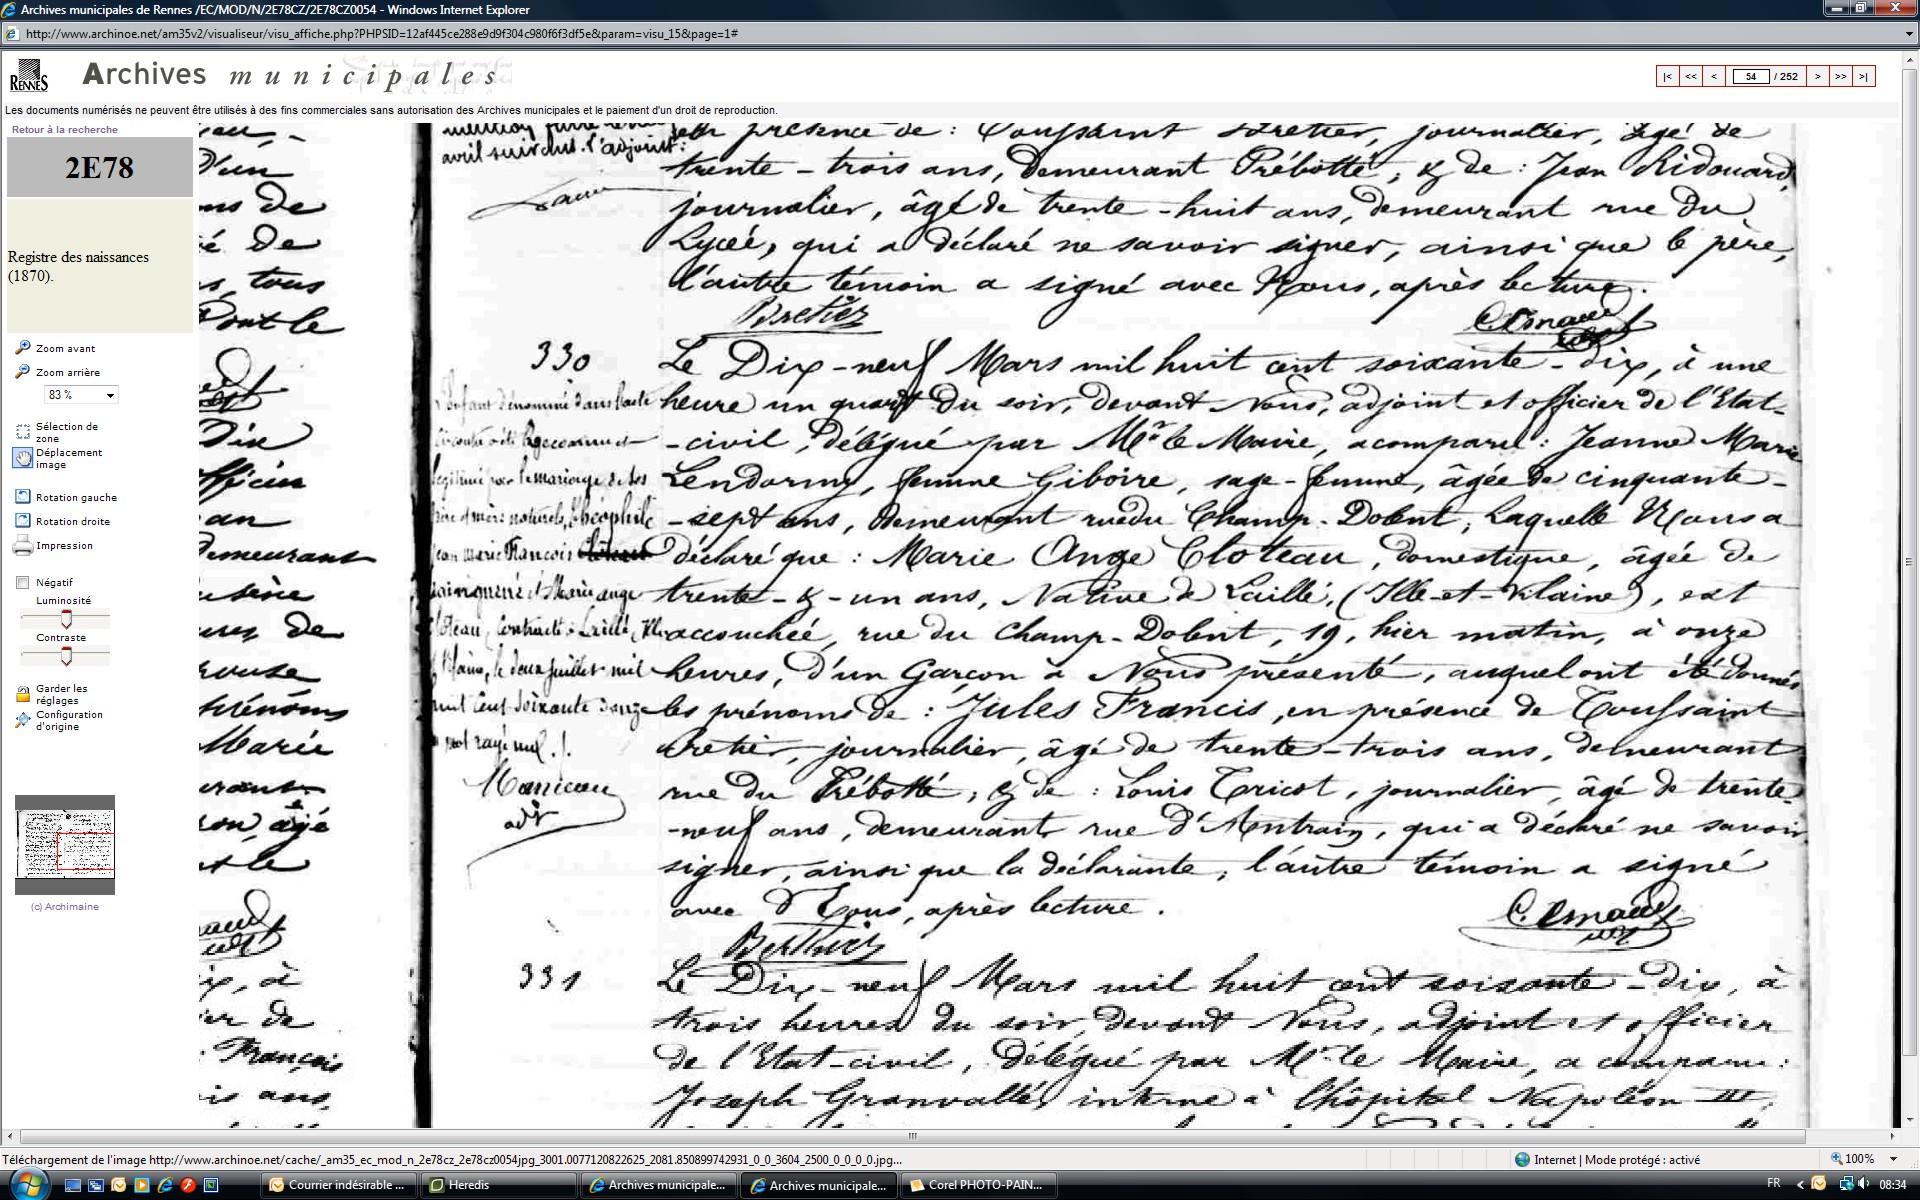 Archives municipales de Rennes /EC/MOD/N/2E78CZ/2E78CZ0054 - Windows Internet Explorer
http://www.archinoe.net/am35v2/visualiseur/visu_affiche.php?PHPSID=12af445ce288e9d9f304c980f6f3df5e&param=visu_15&page=1#
RENNES Archives municipales
|< << < 54 / 252 > >> >|
Les documents numérisés ne peuvent être utilisés à des fins commerciales sans autorisation des Archives municipales et le paiement d'un droit de reproduction.
Retour à la recherche
2E78
Registre des naissances
(1870).
Zoom avant
Zoom arrière
83 %
Sélection de
zone
Déplacement
image
Rotation gauche
Rotation droite
Impression
Négatif
Luminosité
Contraste
Garder les
réglages
Configuration
d'origine
(c) Archimaine
d'un
de
de
tous
Dix
officier
an
demeurant
de
prénoms
Marie
âgé
à
de
François
ans,
avril suivant. l'adjoint:
en présence de : Toussaint Bretier, journalier, âgé de
trente-trois ans, demeurant Prébotté, & de : Jean Ridouard,
journalier, âgé de trente-huit ans, demeurant rue du
Lycée, qui a déclaré ne savoir signer, ainsi que le père,
l'autre témoin a signé avec Nous, après lecture.
Bretier
330
Le Dix-neuf Mars mil huit cent soixante-dix, à une
heure un quart du soir, devant Nous, adjoint et officier de l'Etat-
-civil, délégué par Mr le Maire, a comparu : Jeanne Marie
Lendormy, femme Giboire, sage-femme, âgée de cinquante-
-sept ans, demeurant rue du Champ-Dolent, Laquelle Nous a
déclaré que : Marie Ange Cloteau, domestique, âgée de
trente-&-un ans, Native de Laillé, (Ille-et-Vilaine), est
accouchée, rue du Champ-Dolent, 19, hier matin, à onze
heures, d'un Garçon à Nous présenté, auquel ont été donnés
les prénoms de : Jules Francis, en présence de Toussaint
Bretier, journalier, âgé de trente-trois ans, demeurant
rue du Prébotté, & de : Louis Tricot, journalier, âgé de trente-
-neuf ans, demeurant rue d'Antrain, qui a déclaré ne savoir
signer, ainsi que la déclarante, l'autre témoin a signé
avec Nous, après lecture.
l'Enfant dénommé dans l'acte
ci-contre a été Reconnu et
légitimé par le mariage de ses
père et mère naturels, Théophile
Jean Marie François
et Marie ange
Cloteau, contracté à Laillé, Ille
& Vilaine, le deux juillet mil
huit cent soixante douze
un mot rayé nul ./.
adt
331
Le Dix-neuf Mars mil huit cent soixante-dix, à
trois heures du soir, devant Nous, adjoint et officier
de l'Etat-civil, délégué par Mr le Maire, a comparu :
Joseph Granvallés, interne à l'hôpital Napoléon III,
Téléchargement de l'image http://www.archinoe.net/cache/_am35_ec_mod_n_2e78cz_2e78cz0054jpg_3001.0077120822625_2081.850899742931_0_0_3604_2500_0_0_0_0.jpg...
Internet | Mode protégé : activé
100%
Courrier indésirable ...
Heredis
Archives municipale...
Archives municipale...
Corel PHOTO-PAIN...
FR
08:34